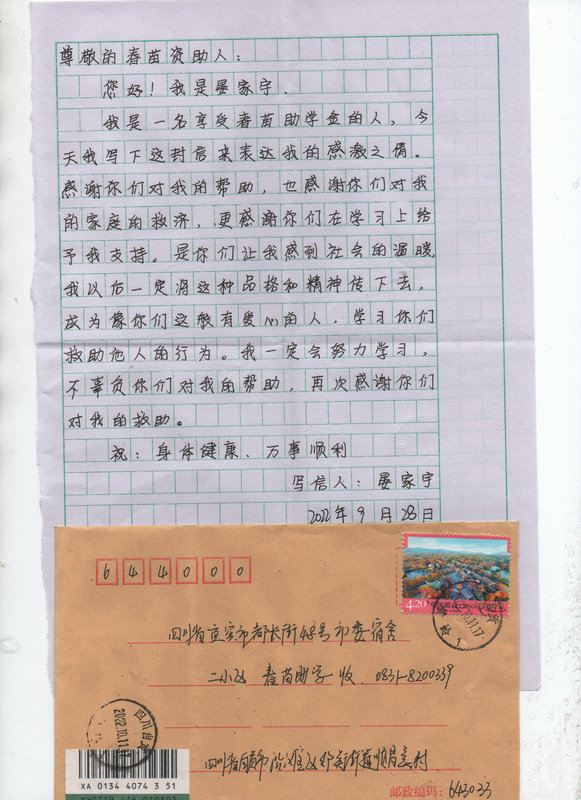 尊敬的春苗资助人：
您好！我是晏家宇.
我是一名享受春苗助学金的人，今
天我写下这封信来表达我的感激之情。
感谢你们对我的帮助，也感谢你们对我
的家庭的救济，更感谢你们在学习上给
予我支持。是你们让我感到社会的温暖，
我以后一定将这种品格和精神传下去，
成为像你们这般有爱心的人，学习你们
救助他人的行为。我一定会努力学习，
不辜负你们对我的帮助，再次感谢你们
对我的救助。
祝：身体健康、万事顺利
写信人：晏家宇
2022年9月28日
644000
4.20 中国邮政 CHINA
四川省宜宾市都长街48号市委宿舍
二小区 春苗助学 收 0831-8200339
四川自贡
2022.10.11
四川省自贡市沿滩区
村
XA 0134 4074 3 51
邮政编码：643033